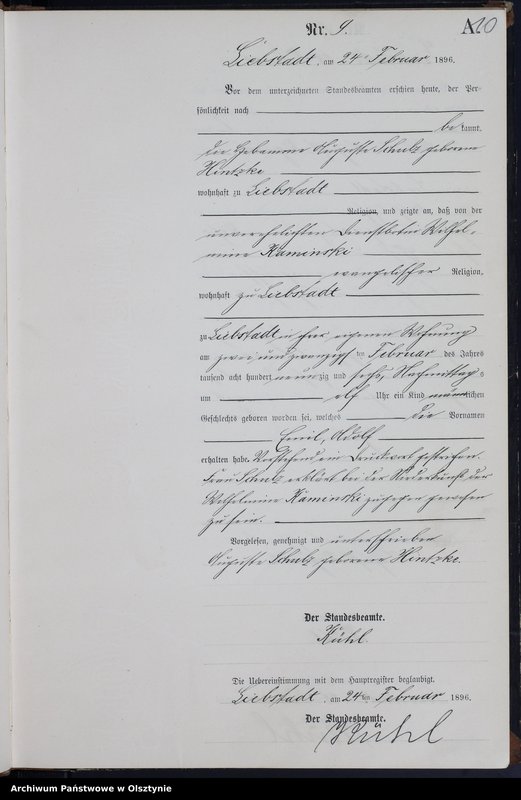 Nr. 9.
A.
10
Liebstadt, am 24ten Februar 1896.
Vor dem unterzeichneten Standesbeamten erschien heute, der Per-
sönlichkeit nach
be kannt,
die Hebamme Auguste Schulz geborene
Hintzke
wohnhaft zu Liebstadt
Religion, und zeigte an, daß von der
unverehelichten Dienstbotin Wilhel-
mine Kaminski
evangelischer Religion,
wohnhaft zu Liebstadt
zu Liebstadt in ihrer eigenen Wohnung
am zwei und zwanzigsten Februar des Jahres
tausend acht hundert neunzig und sechs, Nachmittags
um elf Uhr ein Kind männlichen
Geschlechts geboren worden sei, welches die Vornamen
Emil, Adolf
erhalten habe. Vorstehend ein Druckwort gestrichen.
Frau Schulz erklärt bei der Niederkunft der
Wilhelmine Kaminski zugegen gewesen
zu sein.
Vorgelesen, genehmigt und unterschrieben
Auguste Schulz geborene Hintzke.
Der Standesbeamte.
Kühl.
Die Uebereinstimmung mit dem Hauptregister beglaubigt.
Liebstadt, am 24ten Februar 1896.
Der Standesbeamte.
Kühl
Archiwum Państwowe w Olsztynie